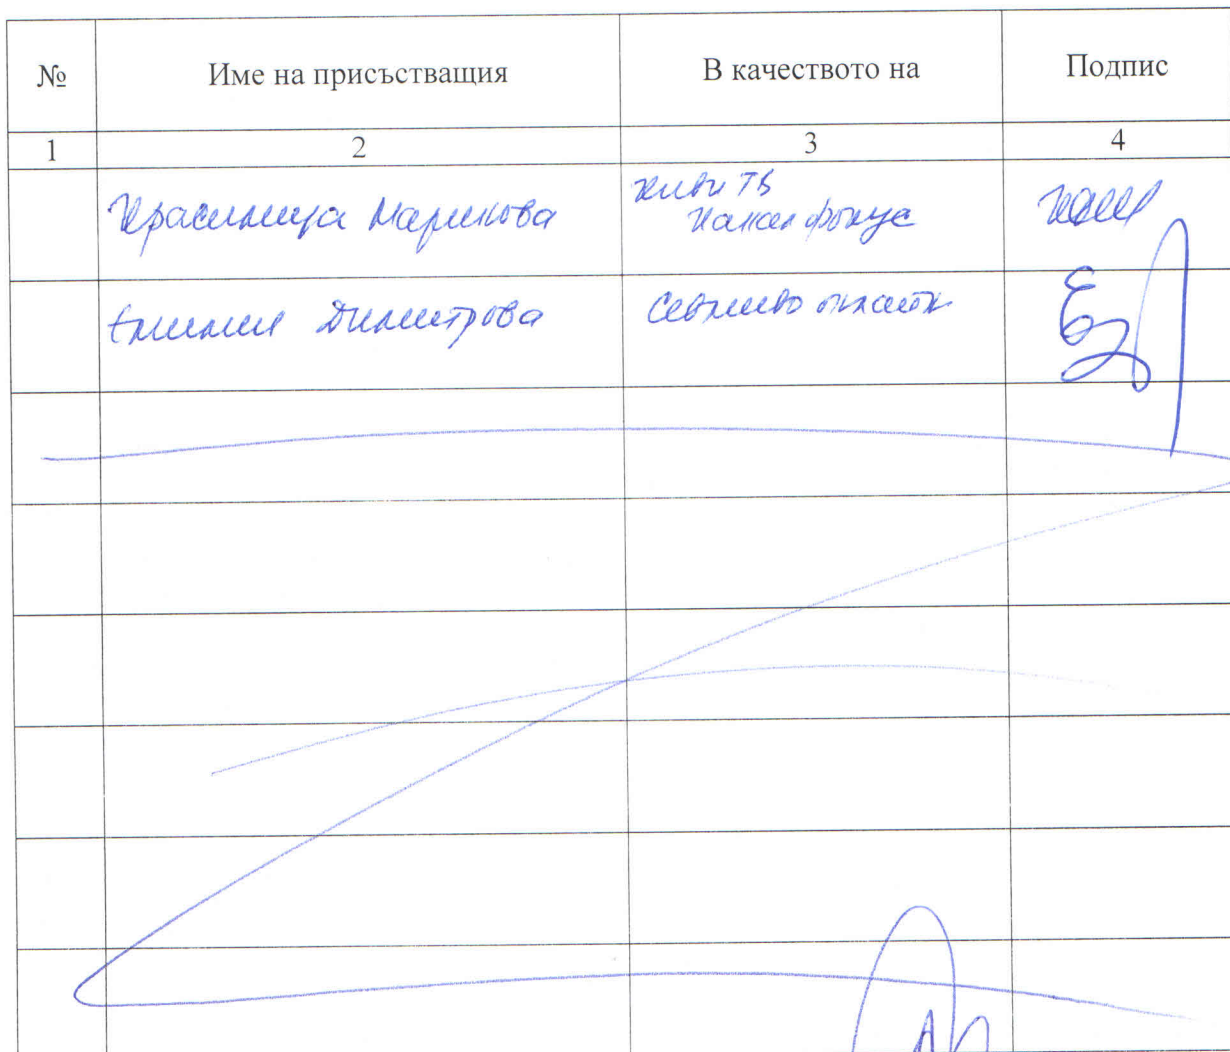 № Име на присъстващия В качеството на Подпис
1 2 3 4
Красимира Маринова
ТВ
Канал фокус
Димитрова Севлиево онлайн